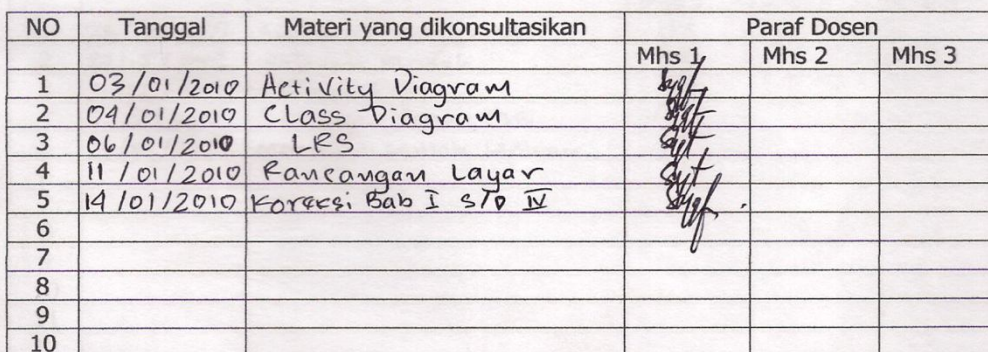 NO Tanggal Materi yang dikonsultasikan Paraf Dosen
Mhs 1 Mhs 2 Mhs 3
1 03/01/2010 Activity Diagram
2 04/01/2010 Class Diagram
3 06/01/2010 LRS
4 11/01/2010 Rancangan Layar
5 14/01/2010 Koreksi Bab I s/d IV
6
7
8
9
10